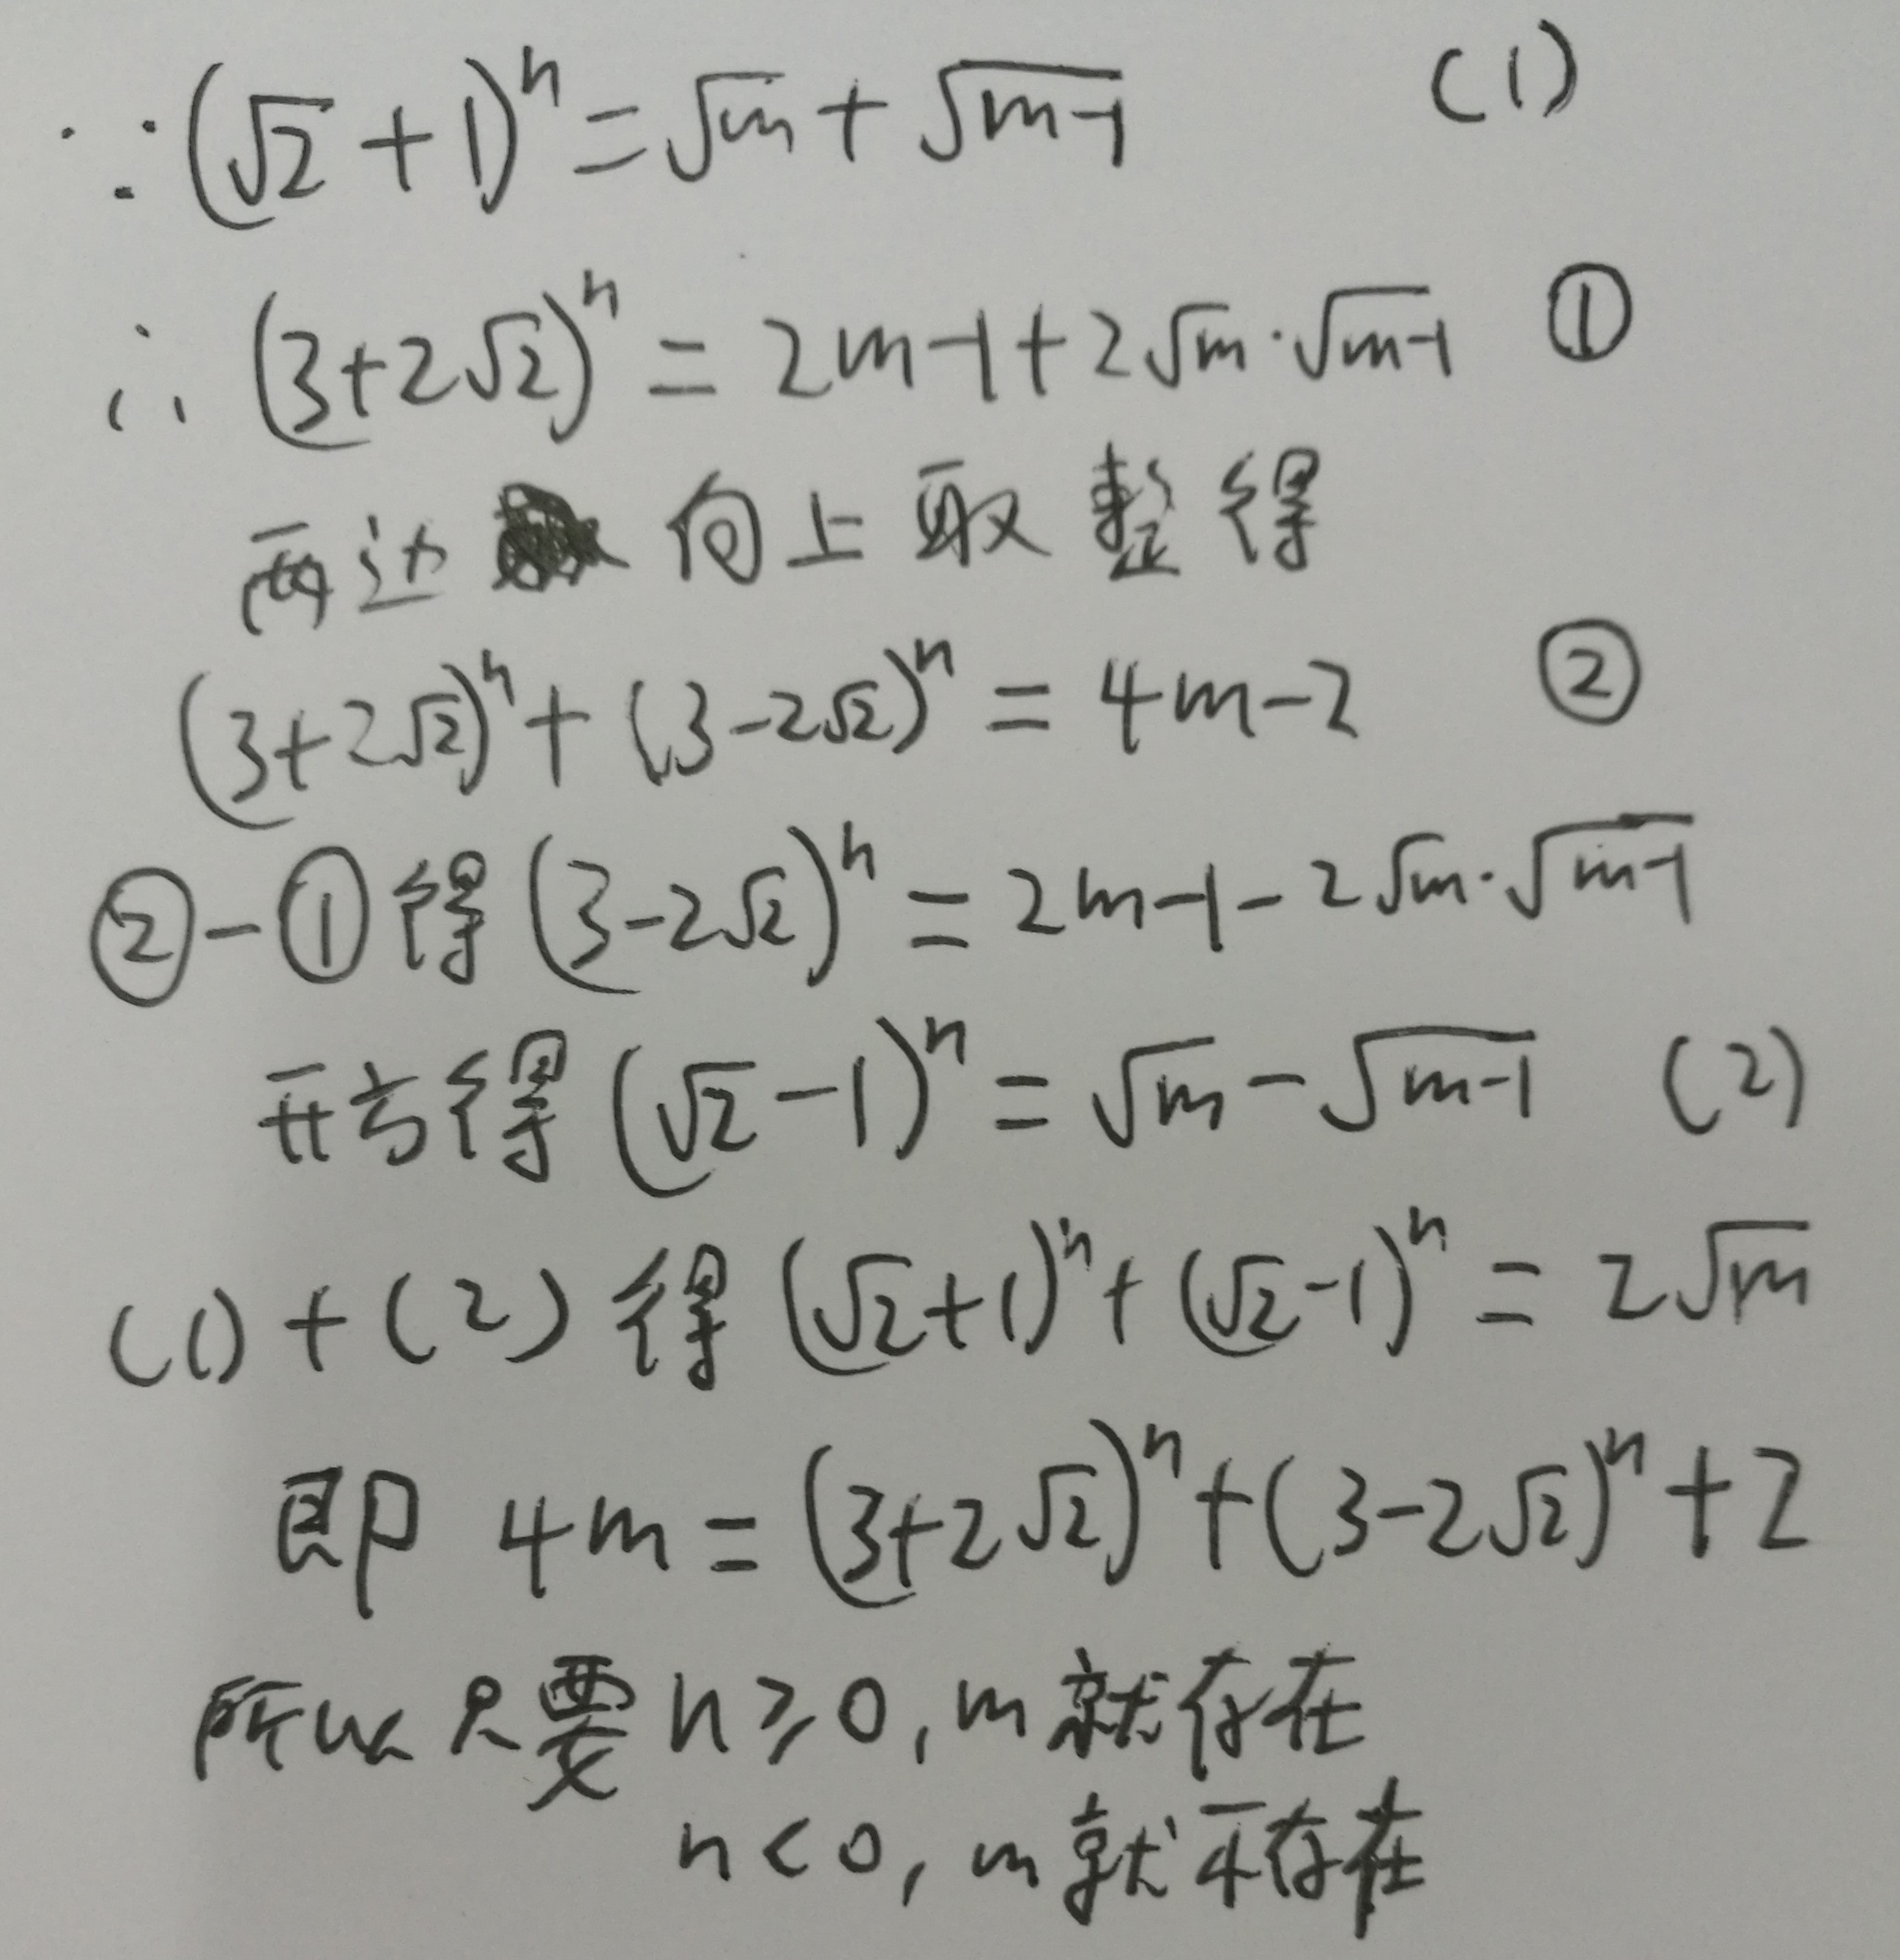 ∵ (√2+1)ⁿ = √m + √(m-1) (1)
∴ (3+2√2)ⁿ = 2m-1+2√m·√(m-1) ①
两边向上取整得
(3+2√2)ⁿ + (3-2√2)ⁿ = 4m-2 ②
②-①得 (3-2√2)ⁿ = 2m-1-2√m·√(m-1)
开方得 (√2-1)ⁿ = √m - √(m-1) (2)
(1)+(2)得 (√2+1)ⁿ + (√2-1)ⁿ = 2√m
即 4m = (3+2√2)ⁿ + (3-2√2)ⁿ + 2
所以只要 n≥0, m就存在
n<0, m就不存在